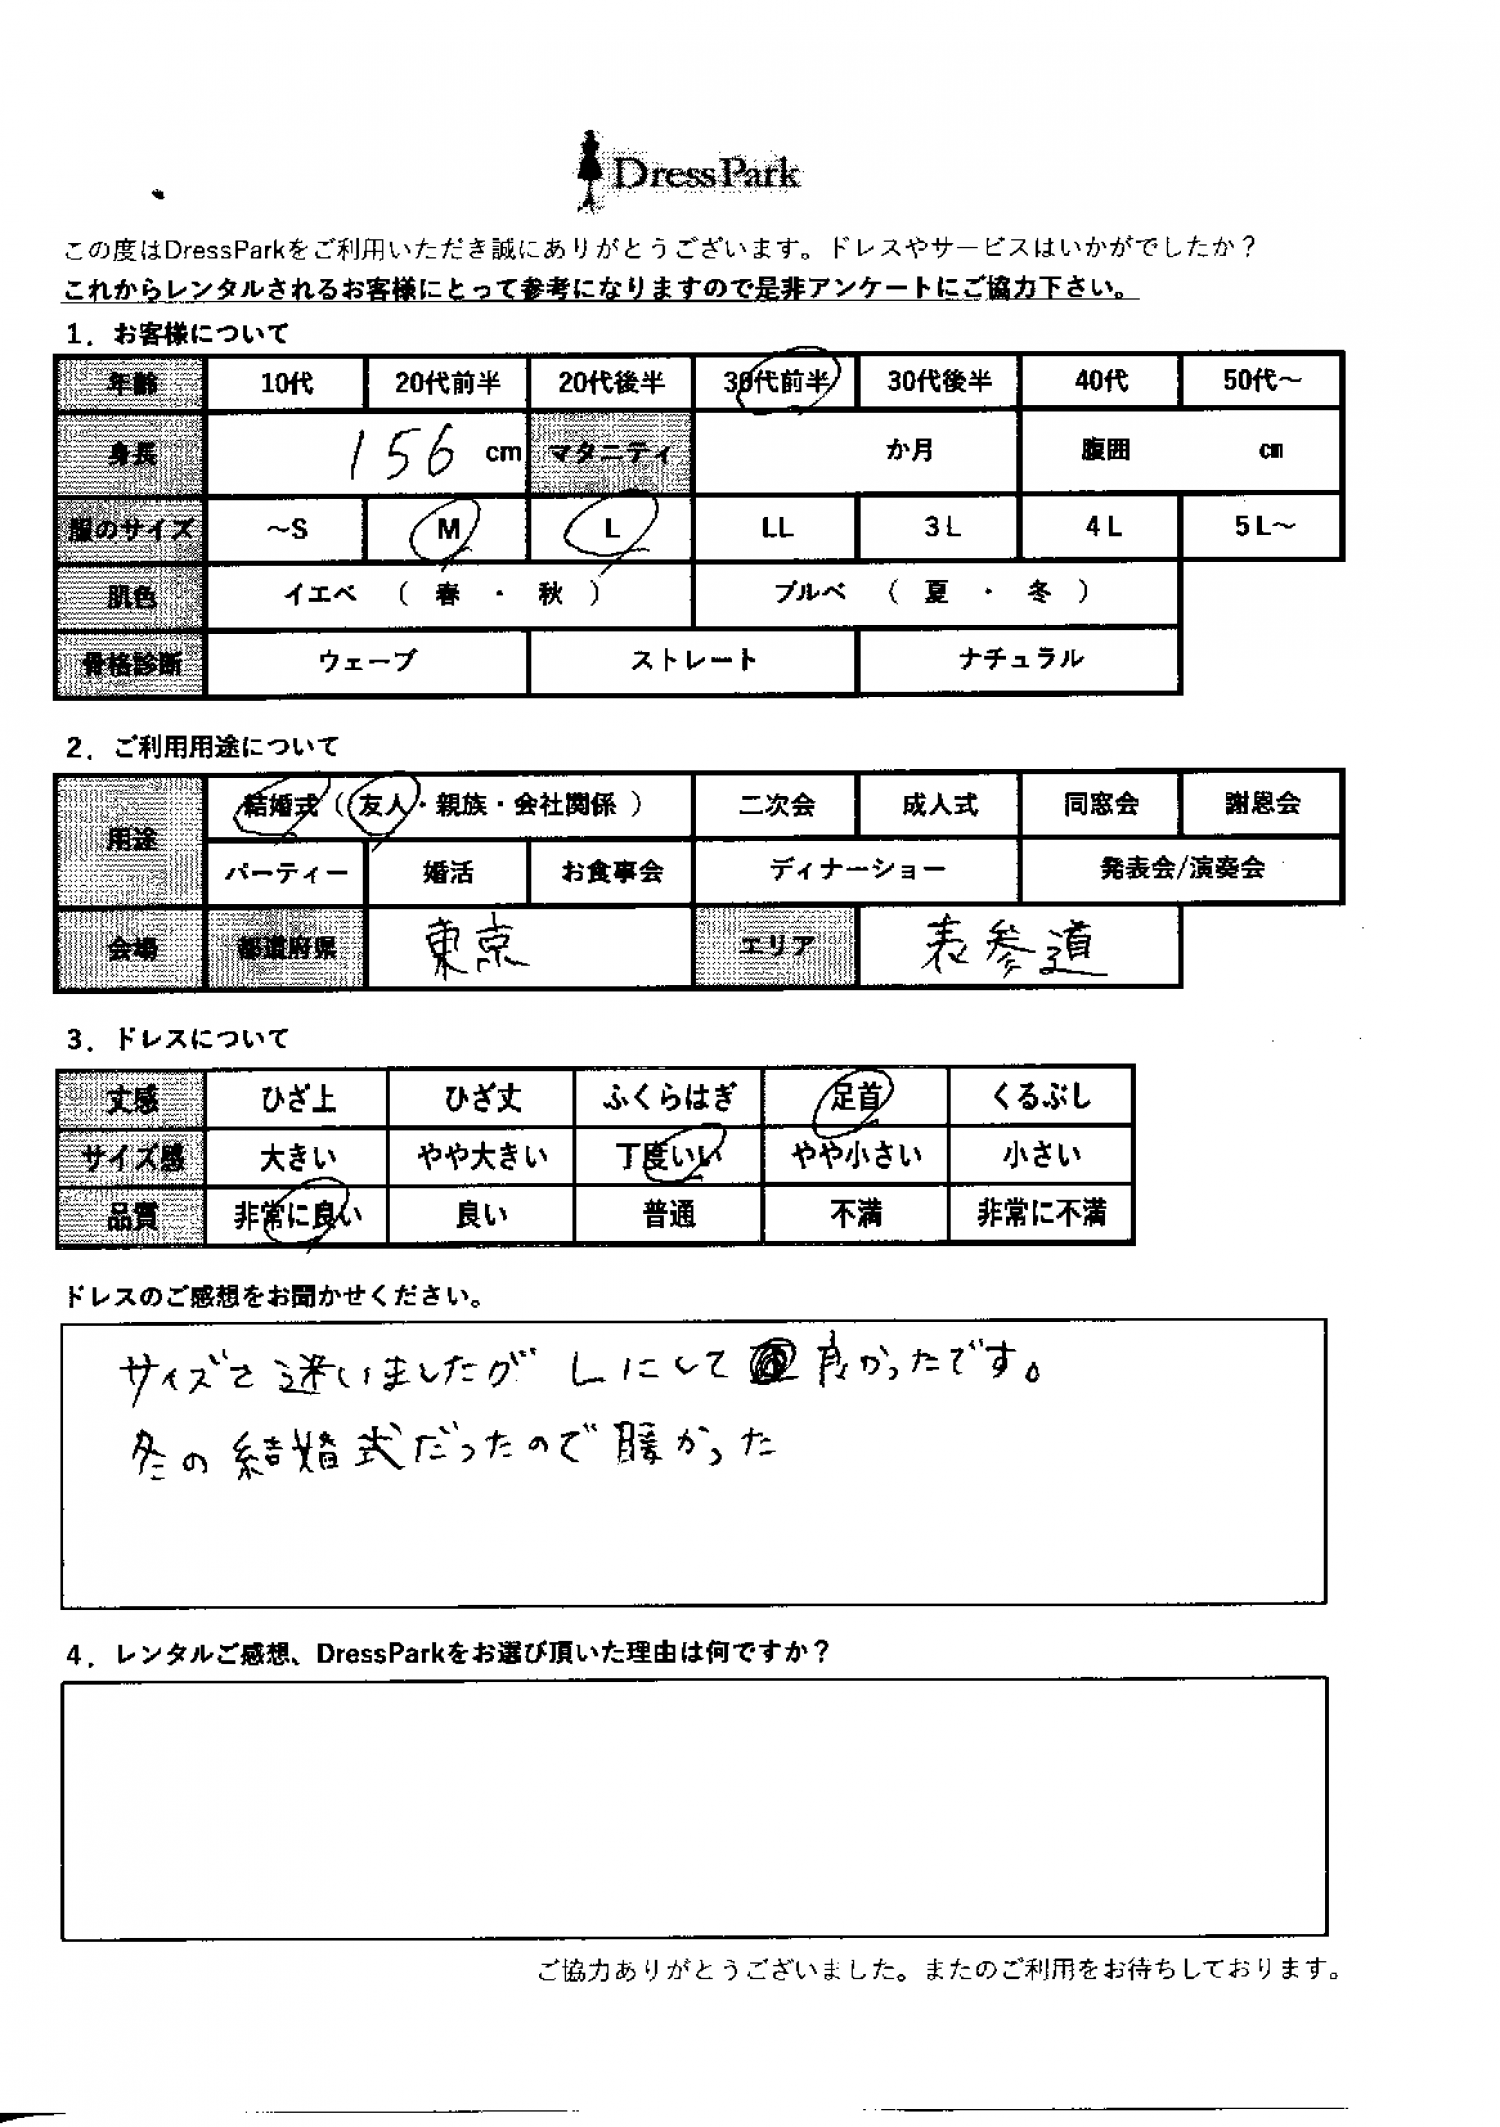 DressPark
この度はDressParkをご利用いただき誠にありがとうございます。ドレスやサービスはいかがでしたか？
これからレンタルされるお客様にとって参考になりますので是非アンケートにご協力下さい。
1．お客様について
年齢 10代 20代前半 20代後半 30代前半 30代後半 40代 50代～
身長 156 cm マタニティ か月 腹囲 ㎝
服のサイズ ～S M L LL 3L 4L 5L～
肌色 イエベ （ 春 ・ 秋 ） ブルベ （ 夏 ・ 冬 ）
骨格診断 ウェーブ ストレート ナチュラル
2．ご利用用途について
用途 結婚式（友人・親族・会社関係 ） 二次会 成人式 同窓会 謝恩会
パーティー 婚活 お食事会 ディナーショー 発表会/演奏会
会場 都道府県 東京 エリア 表参道
3．ドレスについて
丈感 ひざ上 ひざ丈 ふくらはぎ 足首 くるぶし
サイズ感 大きい やや大きい 丁度いい やや小さい 小さい
品質 非常に良い 良い 普通 不満 非常に不満
ドレスのご感想をお聞かせください。
サイズで迷いましたが Lにして 良かったです。
冬の結婚式だったので暖かった
4．レンタルご感想、DressParkをお選び頂いた理由は何ですか？
ご協力ありがとうございました。またのご利用をお待ちしております。